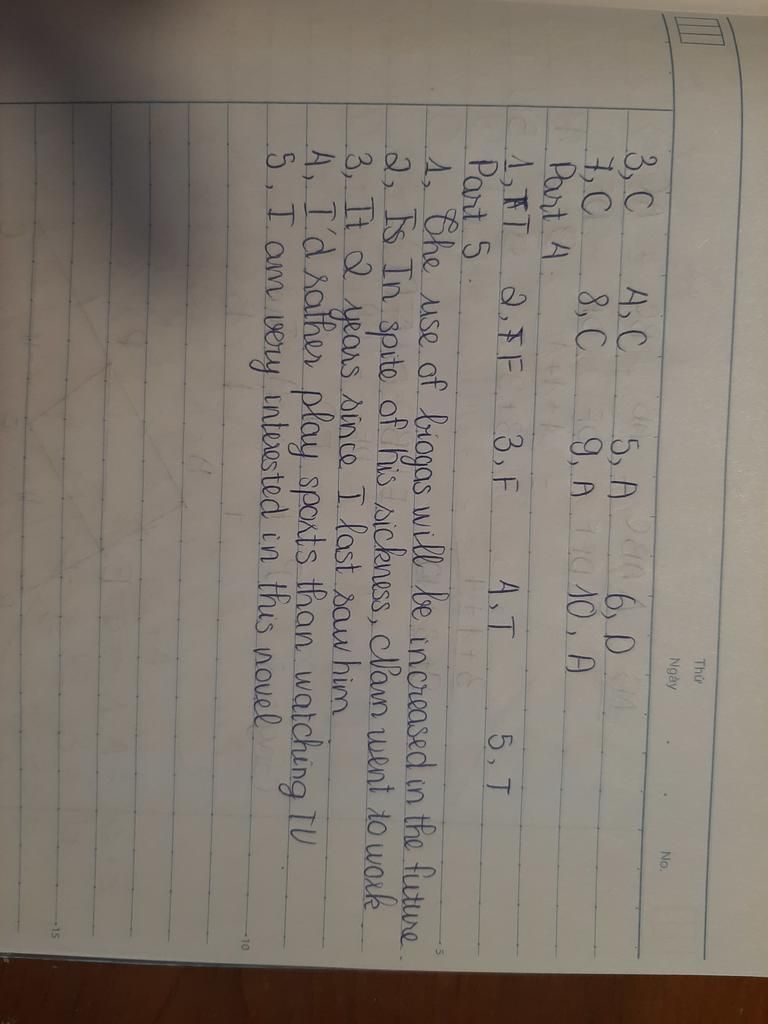 Thứ
Ngày No.
3, C 4, C 5, A 6, D
7, C 8, C 9, A 10, A
Part 4
1, T 2, F 3, F 4, T 5, T
Part 5
1, The use of biogas will be increased in the future.
2, In spite of his sickness, Nam went to work
3, It 2 years since I last saw him
4, I'd rather play sports than watching TV
5, I am very interested in this novel
5
10
15